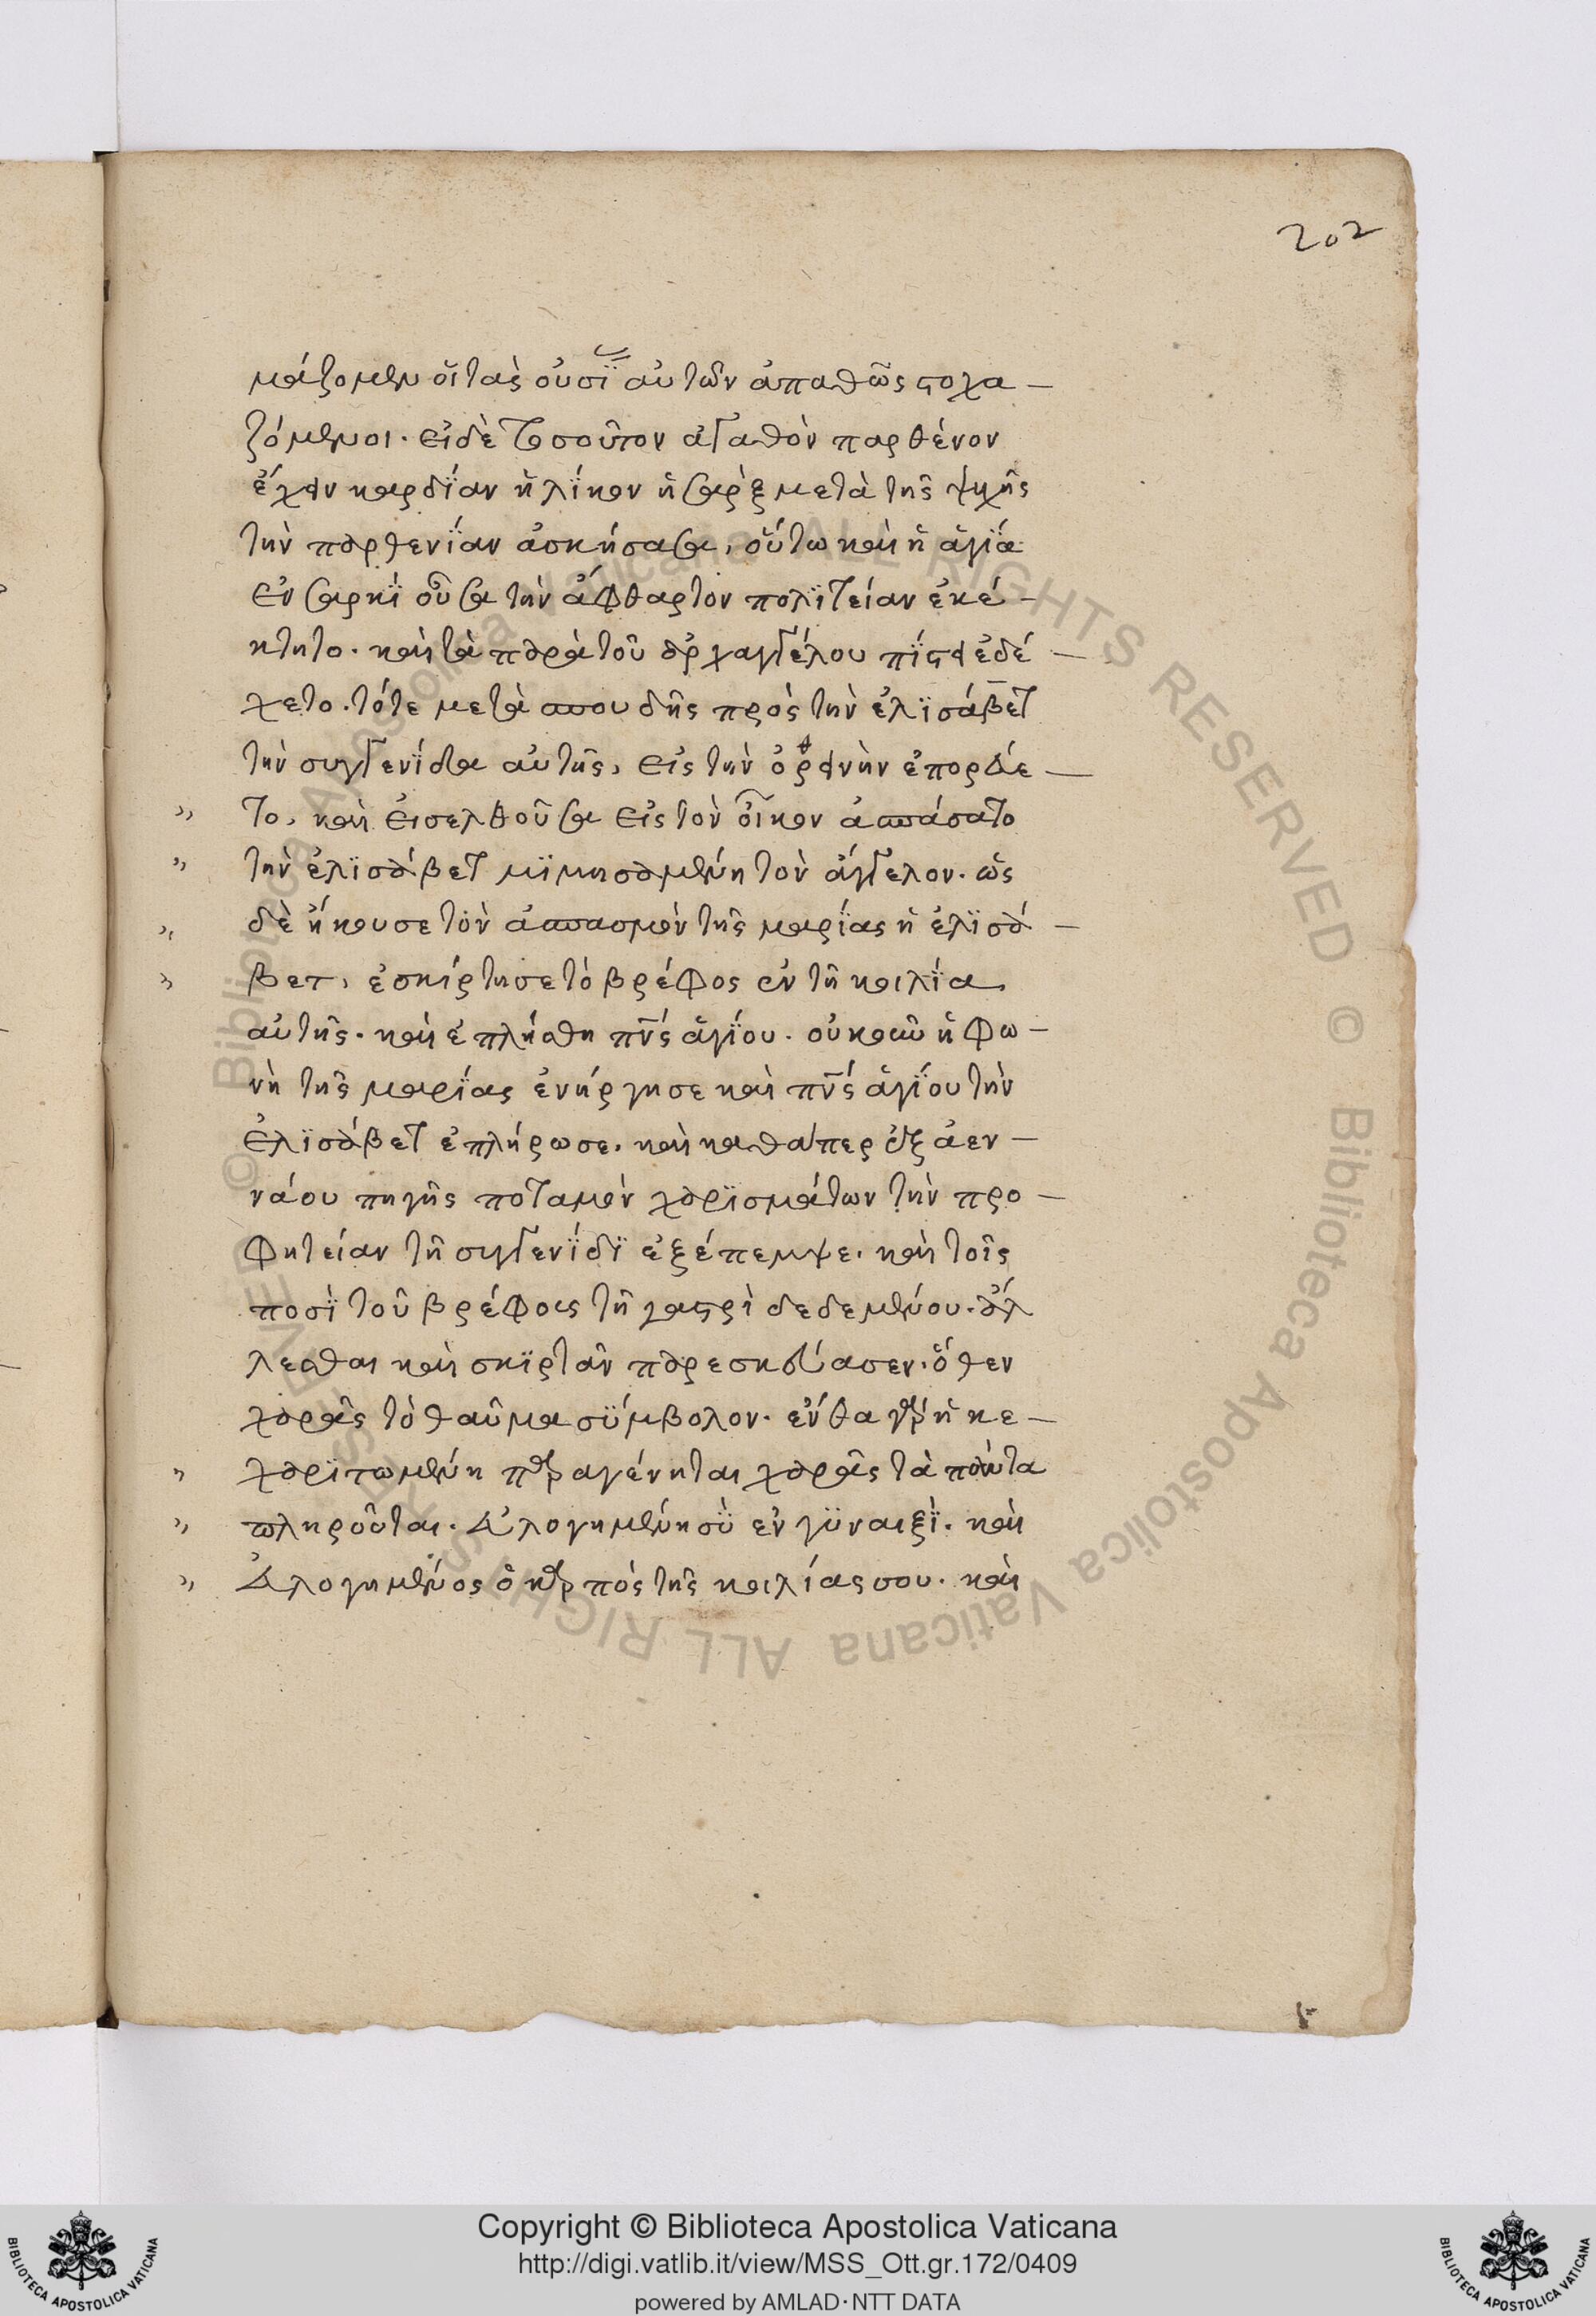 202
μάζομεν οἵ τὰς οὐσΐ αὐτῶν ἀπαθῶς στοχα –
ζόμενοι. εἰ δὲ τοσοῦτον ἀγαθὸν παρθένον
ἔχειν καρδΐαν ἡλΐκον ἡ σὰρξ μετὰ τῆς ψυχῆς
τὴν παρθενΐαν ἀσκήσασα, οὕτω καὶ ἡ ἁγΐα
ἐν σαρκῒ οὖσα τὴν ἄφθαρτον πολϊτείαν ἐκέ –
κτητο. καὶ τὰ παρὰ τοῦ ἀρχαγγέλου πΐστει ἐδέ –
χετο. τότε μετὰ σπουδῆς πρὸς τὴν ἐλϊσάβετ
τὴν συγγενΐδα αὐτῆς, εἰς τὴν ὀρεινὴν ἐπορεύε –
το, καὶ εἰσελθοῦσα εἰς τὸν οἶκον ἀσπάσατο
τὴν ἐλϊσάβετ μϊμησαμένη τὸν ἄγγελον. ὡς
δὲ ἤκουσε τὸν ἀσπασμὸν τῆς μαρΐας ἡ ἐλϊσά –
βετ, ἐσκίρτησε τὸ βρέφος ἐν τῇ κοιλΐα
αὐτῆς. καὶ ἐπλήσθη πνς ἁγΐου. οὐκοῦν ἡ φω –
νὴ τῆς μαρΐας ἐνήργησε καὶ πνς ἁγΐου τὴν
ἐλϊσάβετ ἐπλήρωσε. καὶ καθάπερ ἐξ ἀεν –
νάου πηγῆς ποταμὸν χαρϊσμάτων τὴν προ –
φητείαν τῇ συγγενΐδϊ ἐξέπεμψε. καὶ τοῖς
ποσῒ τοῦ βρέφους τῇ γαστρὶ δεδεμένου. ἅλ
λεσθαι καὶ σκϊρτᾶν παρεσκεύασεν. ὅθεν
χαρᾶς τὸ θαῦμα σΰμβολον. ἔνθα γὰρ ἡ κε –
χαρϊτωμένη παραγένηται χαρᾶς τὰ πάντα
πληροῦται. εὐλογημένη σῢ ἐν γϋναιξῒ. καὶ
εὐλογημένος ὁ καρπὸς τῆς κοιλίας σου. καὶ
© Biblioteca Apostolica Vaticana ALL RIGHTS RESERVED © Biblioteca Apostolica Vaticana ALL RIGHTS RESERVED
Copyright © Biblioteca Apostolica Vaticana
http://digi.vatlib.it/view/MSS_Ott.gr.172/0409
powered by AMLAD·NTT DATA
BIBLIOTECA APOSTOLICA VATICANA
BIBLIOTECA APOSTOLICA VATICANA